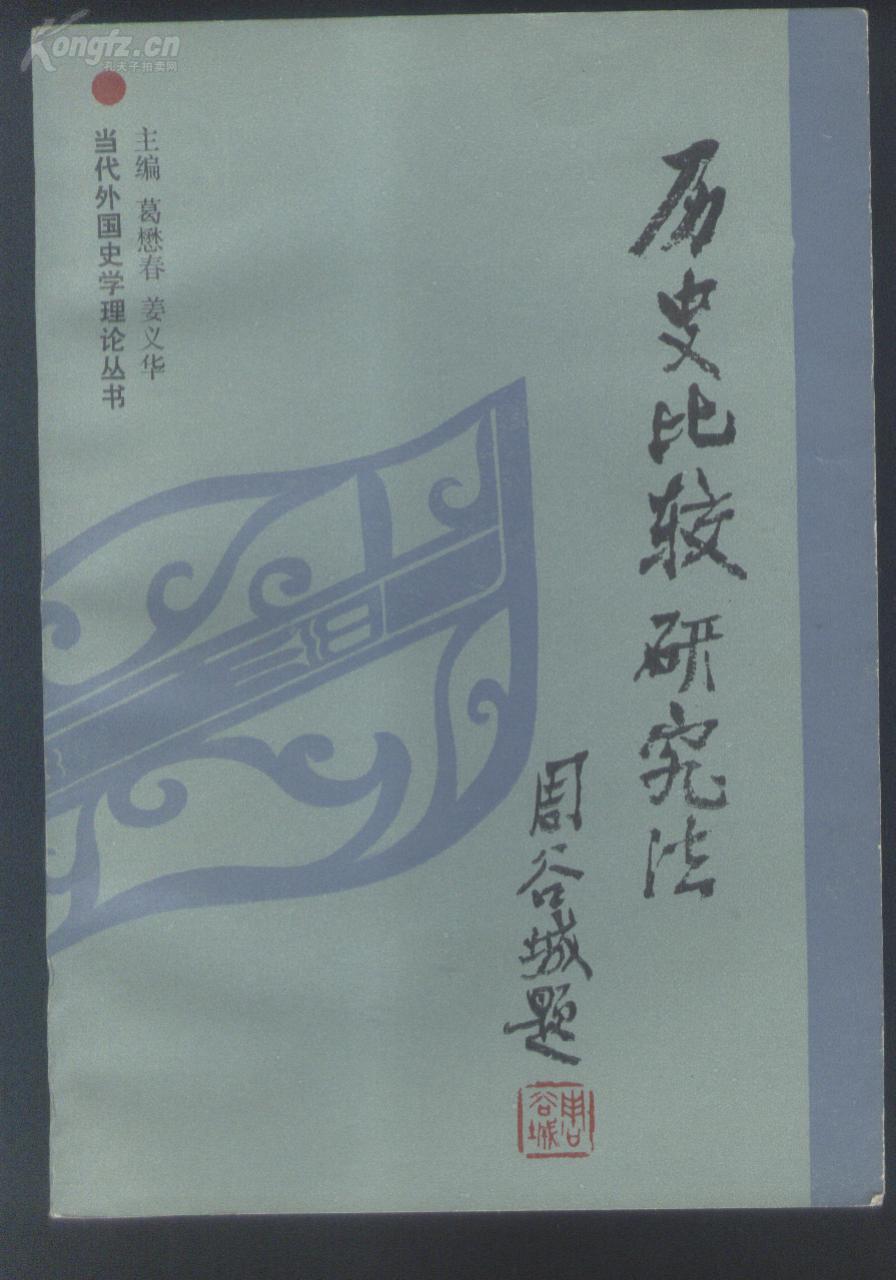 Kongfz.cn
孔夫子拍卖网
历史比较研究法
周谷城题
周谷城
主编 葛懋春 姜义华
当代外国史学理论丛书